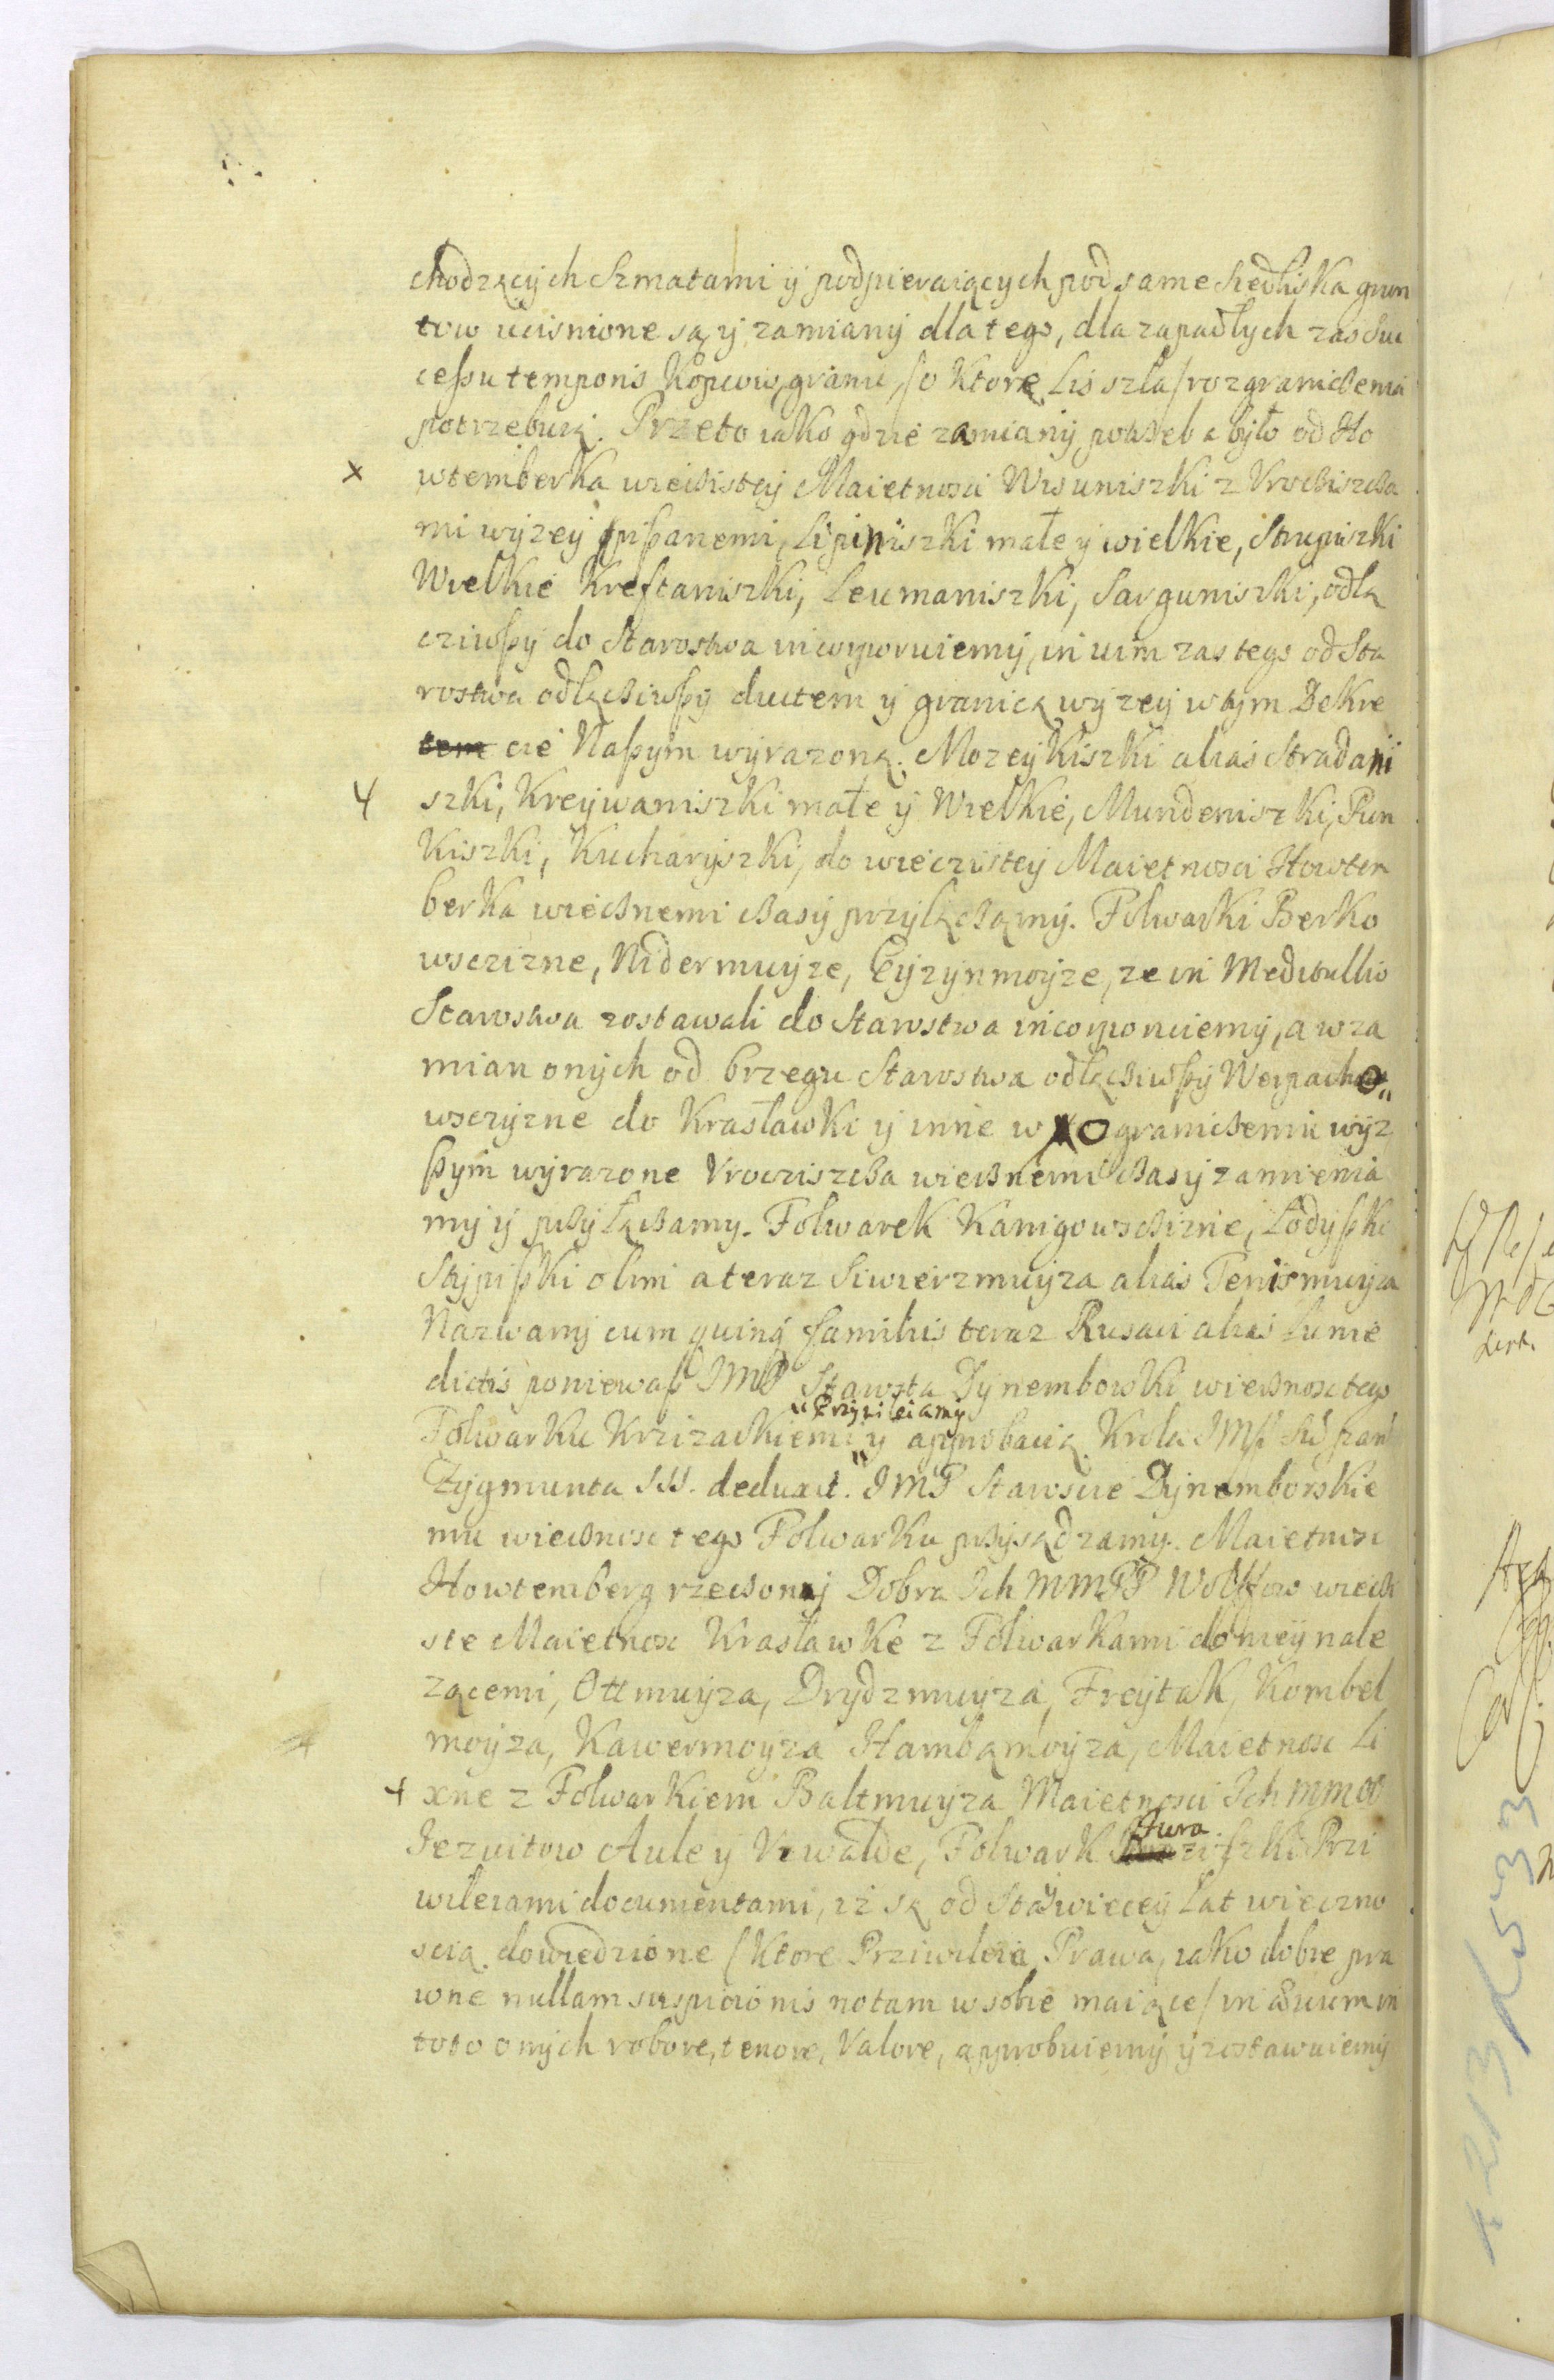 chodzących Szmatami ÿ podpieraiących pod same Siedliska grun
tow ucisnione są, ÿ zamianÿ dla tego, dla zapadłych zas suc
cessu temporis Kopcow, granic, /o Ktore Lis szła/ rozgraniczenia
potrzebuią. Przeto iako gdzie zamianÿ potrzeba bÿło od Ho
wtemberka wieczistey Maietnosci Wisuniszki z Vrocziszcza
mi wÿzeÿ spisanemi, Lipiniszki małe ÿ wielkie, Strupiszki
Wielkie Kreftaniszki, Leumaniszki, Sarguniszki, odłą
cziwszÿ do Starostwa incorporuiemÿ, in vim zas tego od Sta
rostwa odłącziwszÿ ductem ÿ granicą wÿzeÿ w tÿm Dekre
cie Naszÿm wÿrazoną. Mozeÿkiszki alias Stradani
szki, Kreÿwaniszki małe ÿ Wielkie, Mundeniszki, Pun
Kiszki, Kucharÿszki, do wieczistey Maietnosci Howten
berka wiecznemi czasÿ przÿłączamÿ. Folwarki Berko
wsczizne, Nidermuÿze, Cÿzÿnmoÿze, ze in Meditullio
Starostwa zostawali do Starostwa incorporuiemÿ, a w za
mian onÿch od brzegu Starostwa odłącziwszÿ Werpacho„
wsczÿzne do Krasławki ÿ inne w ograniczeniu wÿz
szÿm wÿrazone Vrocziszcza wiecznemi czasÿ zamienia
mÿ ÿ przÿłączamy. Folwarek Kanigowszczizne, Lodÿszki
Stÿpiszki olim a teraz Siwierzmuÿza alias Tenismuÿza
Nazwanÿ cum quinq familiis teraz Rusaci alias Lunie
dictis poniewasz JMP Starosta Dÿnemborski wiecznosc tego
„Prziwileiamÿ
Folwarku Krzizackiemi ÿ approbacią Krola JMsci
Zÿgmunta deduxit. JMP Staroscie Dÿnemborskie
mu wiecznosc tego Folwarku przÿsądzamy. Maietnosc
Howtemberg rzeczonaj Dobra Ich MMPP Wolffow wieczi
ste Maietnosc Krasławke z Folwarkami do nieÿ nale
zącemi, Ottmuÿza, Drÿdzmuÿza, Freÿtak, Kombel
moÿza, Kawermoÿza Hambąmoÿza, Maietnosc Li
xne z Folwarkiem Baltmuÿza Maietnosci Ich MMOO
Jezuitow Aule ÿ Vzwalde, Folwark Jura ziszki Przi
wileiami documentami, iz są od Sta ÿ wiecey Lat wieczno
scią dowiedzione /Ktore Prziwileia Prawa, iako dobre pra
wne nullam suspicionis notam w sobie maiące/ in ævum in
toto onÿch robore, tenore, Valore, approbuiemÿ ÿ zostawuiemÿ